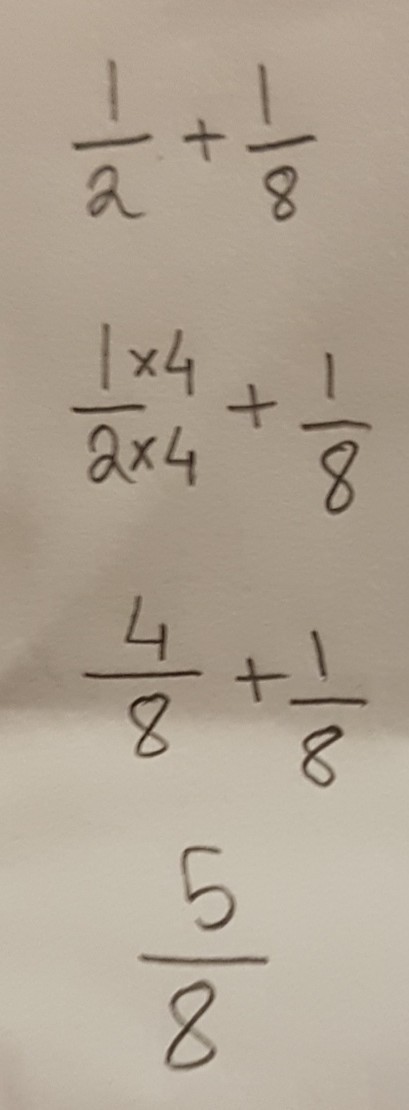 1/2 + 1/8
1×4/2×4 + 1/8
4/8 + 1/8
5/8